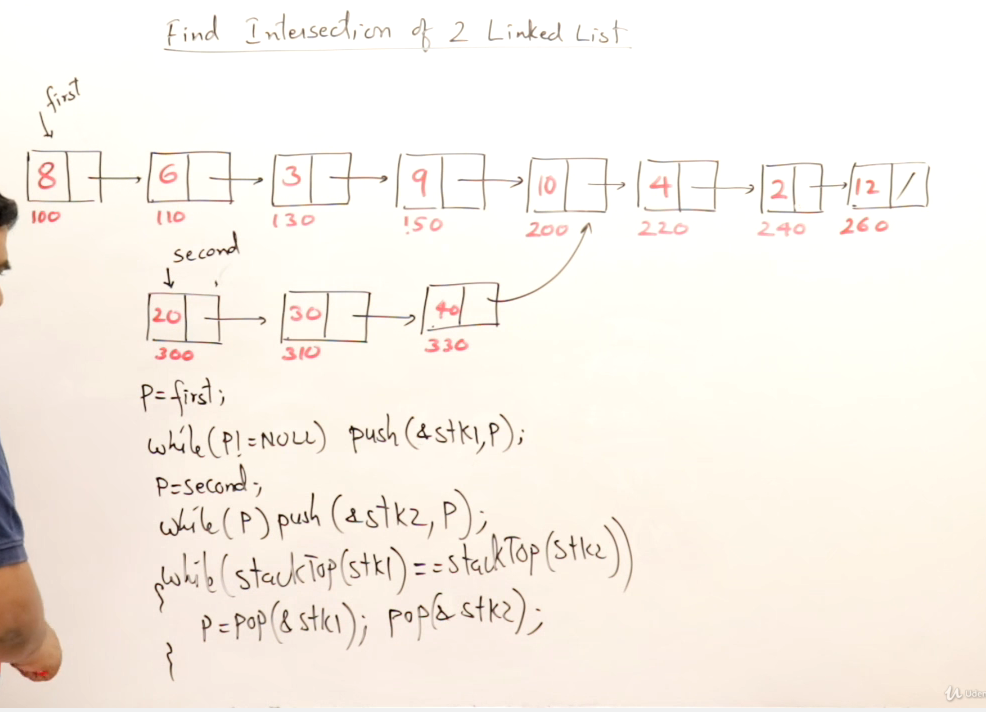 Find Intersection of 2 Linked List
first
8 6 3 9 10 4 2 12 /
100 110 130 150 200 220 240 260
second
20 30 40
300 310 330
P=first;
while(P!=NULL) push(&stk1,P);
P=second;
while(P) push(&stk2,P);
while(stackTop(stk1)==stackTop(stk2))
{
P=pop(&stk1); pop(&stk2);
}